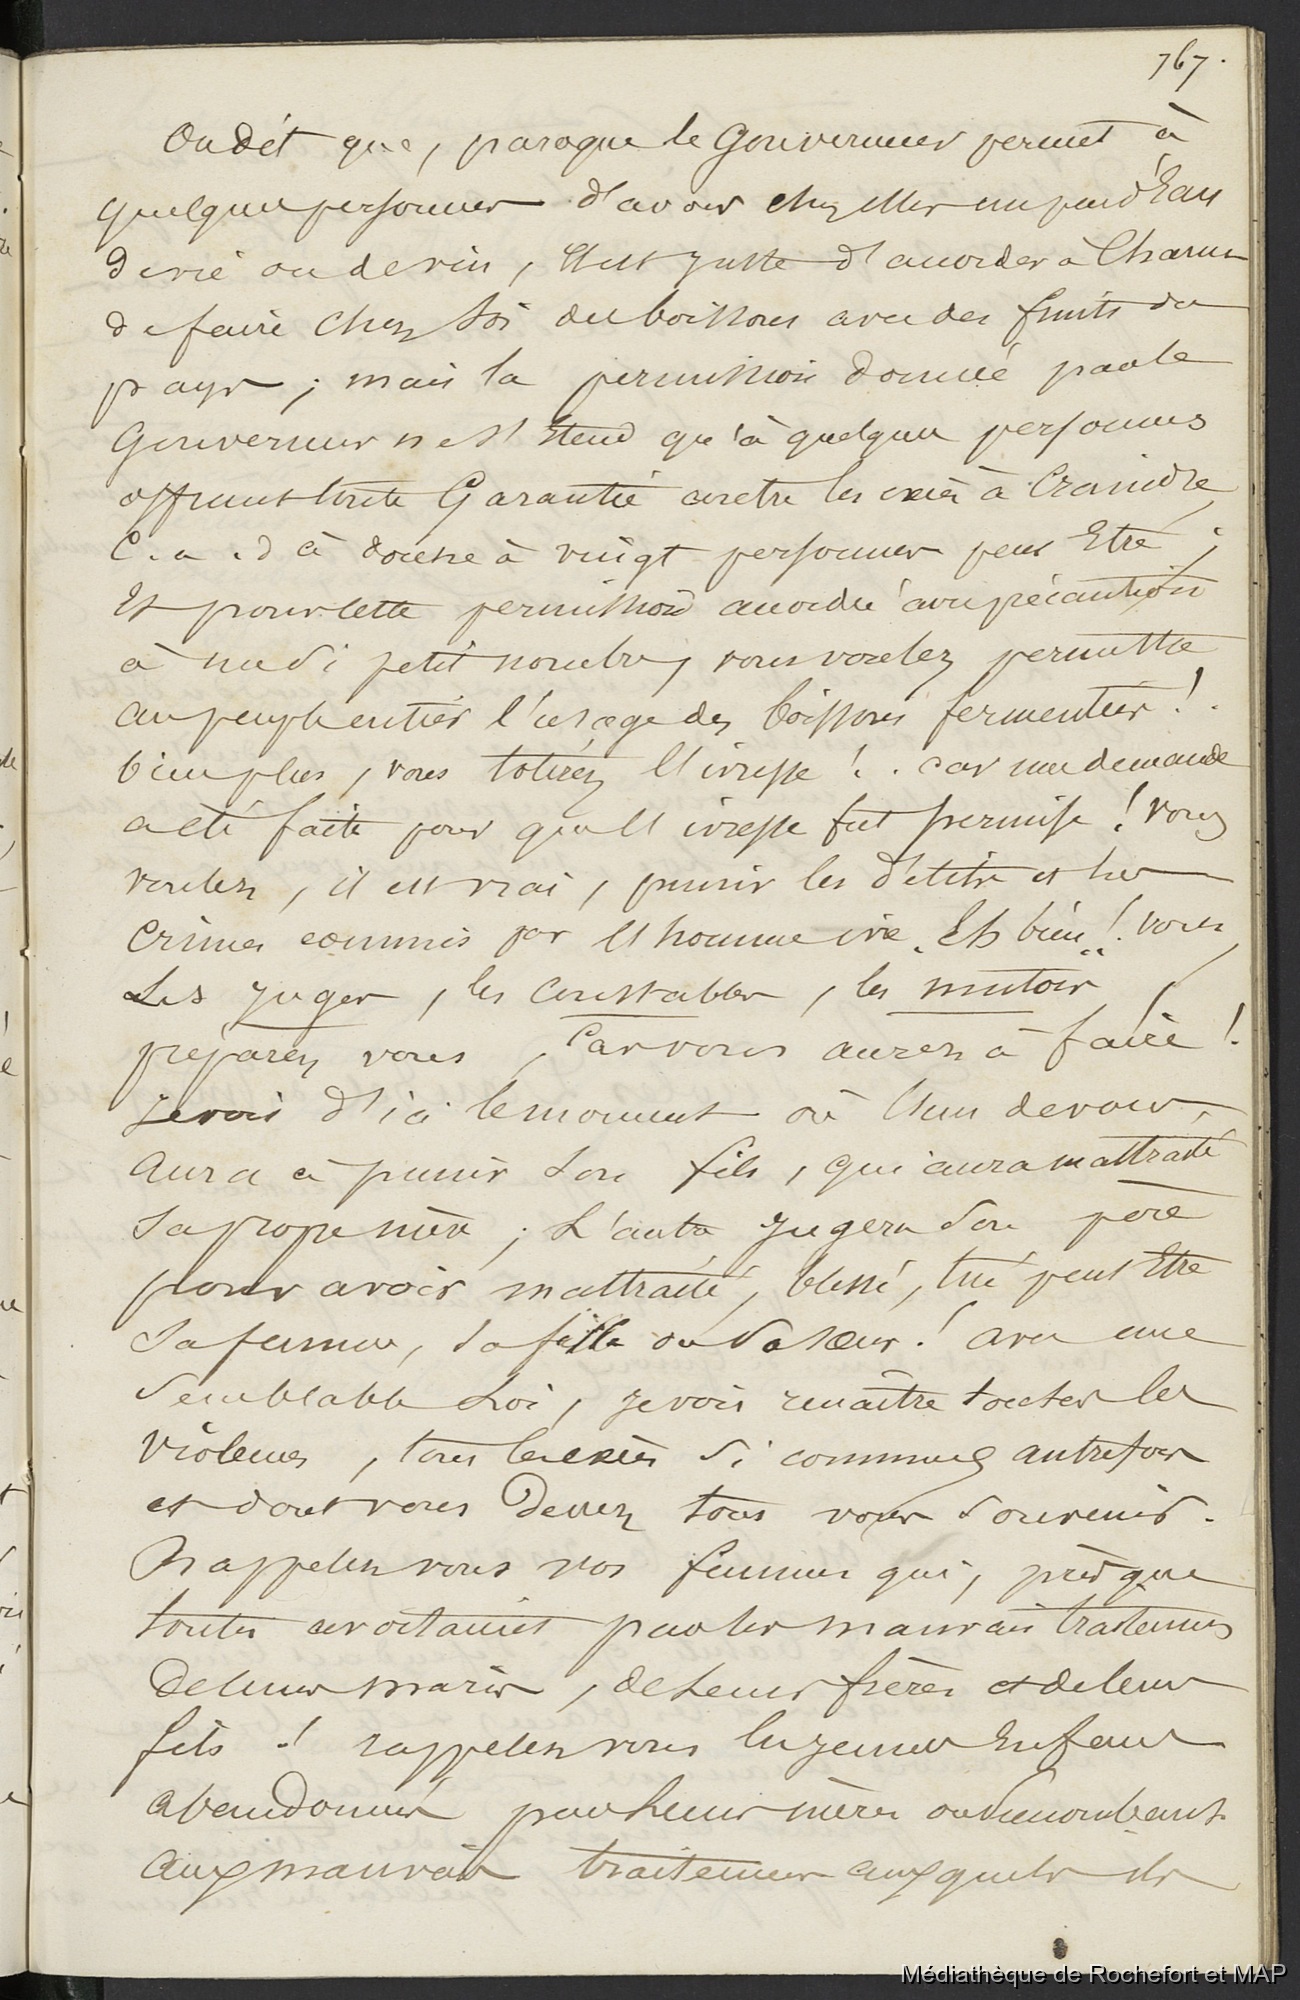 767.
On dit que, parceque le Gouverneur permet à
quelques personnes d'avoir chez elles un peu d'Eau
de vie ou de vin, il est juste d'accorder à Chacun
de faire chez soi des boissons avec des fruits du
pays ; mais la permission donnée par le
Gouverneur n'est Etend qu'à quelques personnes
offrant toute Garantie contre les excès à Craindre
C. a. d à douze à vingt personnes peut Etre ;
Et pour cette permission accordée avec précaution
à un si petit nombre, vous voulez permettre
au peuple entier l'usage des boissons fermentées ! .
bien plus, vous tolérez l'ivresse ! . car une demande
a été faite pour que l'ivresse fut permise ! vous
voulez, il est vrai, punir les délits et les
crimes commis par l'homme ivre. Eh bien ! vous
Les juges, les constables, les mutois
préparez vous, Car vous aurez à faire !
Je vois d'ici le moment où l'un de vous,
aura à punir son fils, qui aura maltraité
sa propre mère ; L'autre jugera son père
pour avoir maltraité, blessé, tué peut Etre
sa femme, sa fille ou sa soeur ! avec une
semblable Loi, je vois renaître toutes les
violences, tous les excès si communs autrefois
et dont vous devez tous vous souvenir.
Rappelez vous vos femmes qui, presque
toutes avortaient par les mauvais traitemens
de leurs maris, de leurs frères et de leurs
fils ! rappelez vous les jeunes Enfans
abandonnés par leurs mères ou succombant
aux mauvais traitemens auxquels ils
Médiathèque de Rochefort et MAP